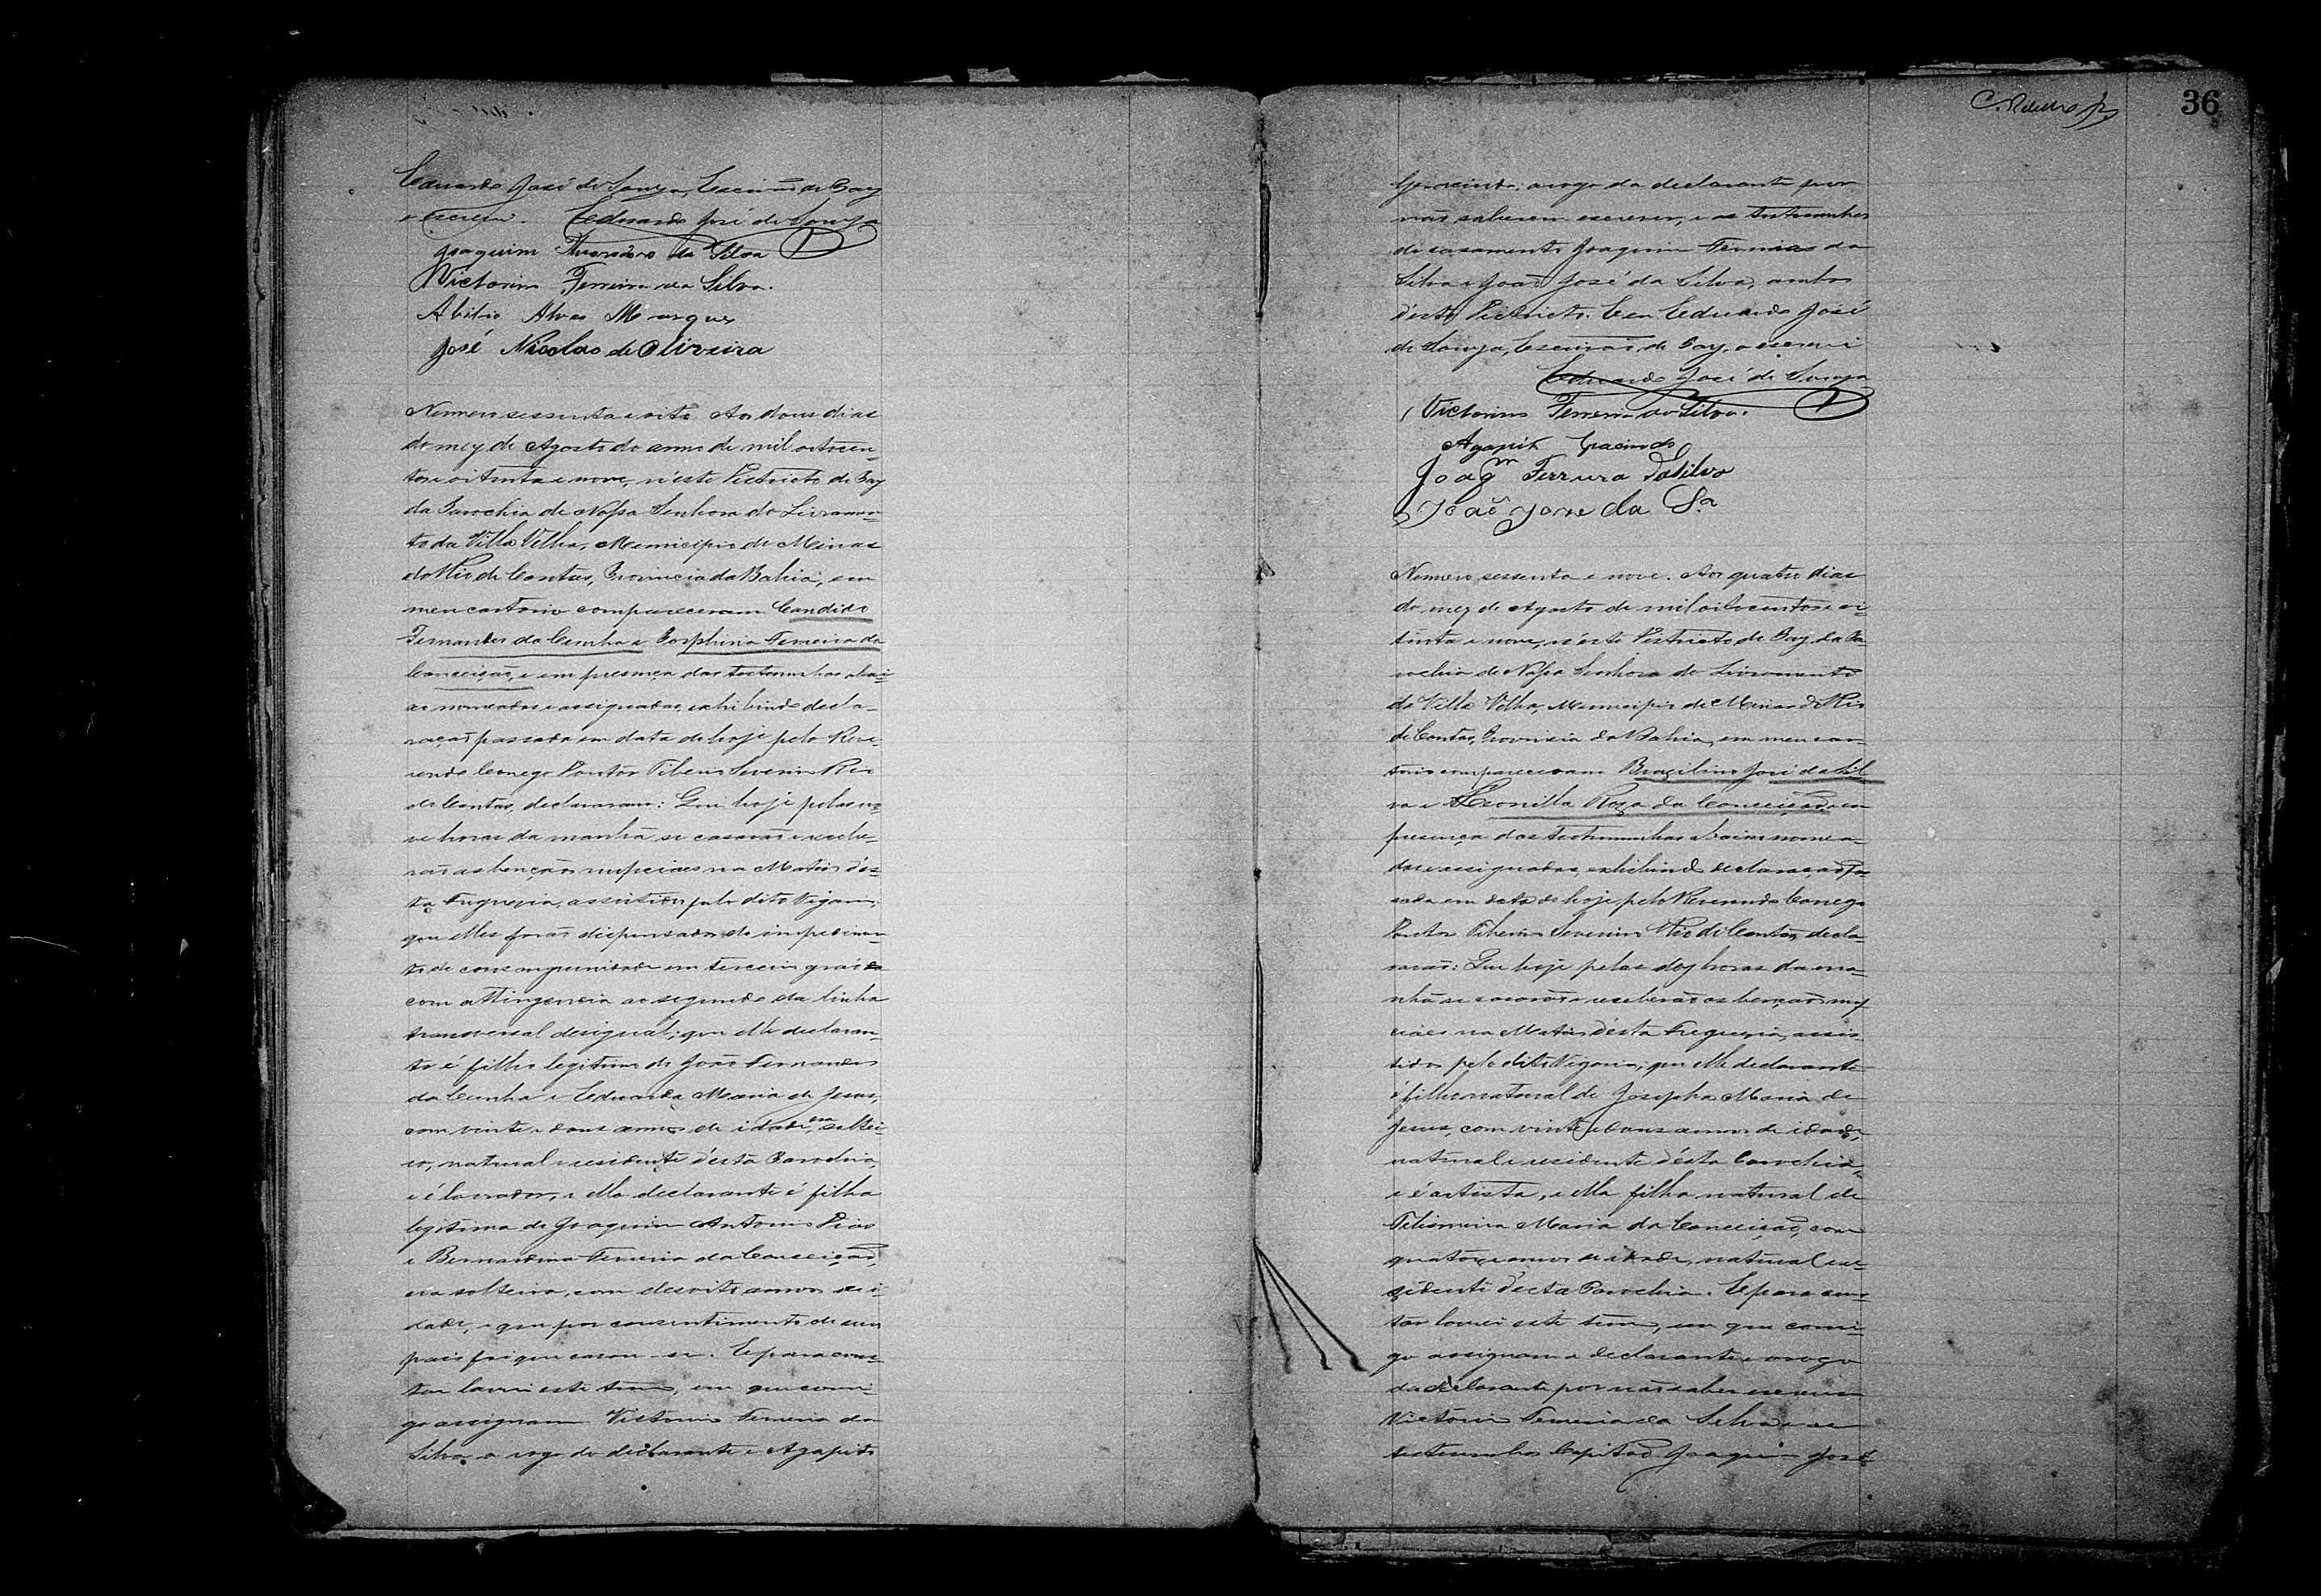 Eduardo José de Souza, Escrivão de Paz
o escrevi. Eduardo José de Souza
Joaquim da Silva
Victorino Ferreira da Silva.
Abilio Alves Marques
José Nicolao de Oliveira
Numero sessenta e oito. Aos dous dias
do mez de Agosto do anno de mil oitocen-
tos e oitenta e nove, n'este Districto de Paz
da Parochia de Nossa Senhora do Livramen-
to da Villa Velha, Municipio de Minas
do Rio de Contas, Provincia da Bahia, em
meu cartorio compareceram Candido
Fernandes da Cunha e Josephina Ferreira da
Conceição, e em presença das testemunhas abai-
xo nomeadas e assignadas, exhibindo decla-
ração passada em data de hoje pelo Reve-
rendo Conego Doutor Tiberio Severino Rio
de Contas, declararam: Que hoje pelas no-
ve horas da manhã se casarão e recebe-
rão as bençãos nupciaes na Matriz d'es-
ta Freguezia, assistidos pelo dito Vigario;
que elles forão dispensados do impedimen-
to de consanguinidade em terceiro gráo
com attingencia ao segundo da linha
transversal desigual; que elle declaran-
te é filho legitimo de João Fernandes
da Cunha e Eduarda Maria de Jesus,
com vinte e dous annos de idade, era soltei-
ro, natural e residente d'esta Parochia,
e é lavrador, e ella declarante é filha
legitima de Joaquim Antonio Dias
e Bernardina Ferreira da Conceição,
era solteira, com desoito annos de i-
dade, e que por consentimento de seus
pais foi que casou-se. E para cons-
tar lavrei este termo, em que comi-
go assignam Victorino Ferreira da
Silva a rogo do declarante e Agapito
36
Gracindo, a rogo da declarante por
não saberem escrever, e as testemunhas
do casamento Joaquim Ferreira da
Silva e João José da Silva, ambos
d'este Districto. Eu Eduardo José
de Souza, Escrivão de Paz, o escrevi
Eduardo José de Souza
Victorino Ferreira da Silva.
Agapito Gracindo
Joaqm Ferrura daSilva
João Jose da Sa
Numero sessenta e nove. Aos quatro dias
do mez de Agosto de mil oitocentos e oi-
tenta e nove, n'este Districto de Paz da Pa-
rochia de Nossa Senhora do Livramento
da Villa Velha, Municipio de Minas do Rio
de Contas, Provincia da Bahia, em meu car-
torio compareceram Brazilino José da Sil-
va e Leonilla Roza da Conceição, e em
presença das testemunhas abaixo nomea-
das e assignadas, exhibindo declaração pas-
sada em data de hoje pelo Reverendo Conego
Doutor Tiberio Severino Rio de Contas, decla-
rarão: Que hoje pelas dez horas da ma-
nhã se casarão e receberão as bençãos nup-
ciaes na Matriz d'esta Freguezia, assis-
tidos pelo dito Vigario; que elle declarante
é filho natural de Josepha Maria de
Jesus, com vinte e dous annos de idade,
natural e residente d'esta Parochia,
e é artista, e ella filha natural de
Felismina Maria da Conceição, com
quatorze annos de idade, natural e re-
sidente d'esta Parochia. E para cons-
tar lavrei este termo, em que comi-
go assignam o declarante e a rogo
da declarante por não saber escrever
Victorino Ferreira da Silva e as
testemunhas Capitão Joaquim José